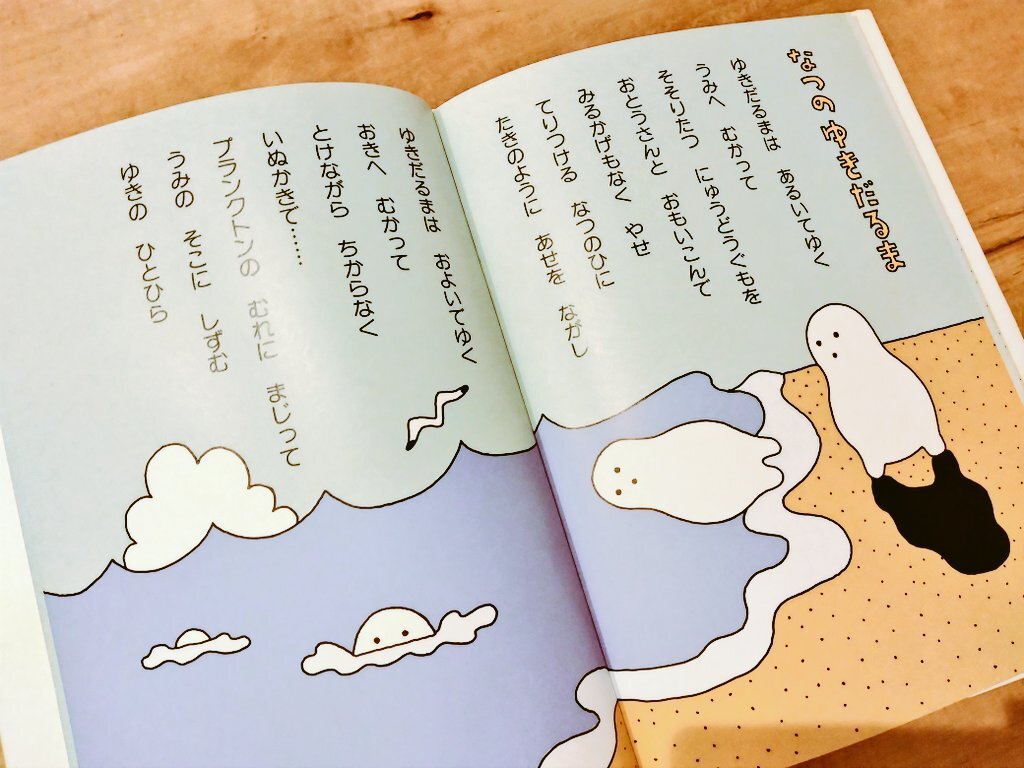 なつの ゆきだるま
ゆきだるまは あるいてゆく
うみへ むかって
そそりたつ にゅうどうぐもを
おとうさんと おもいこんで
みるかげもなく やせ
てりつける なつのひに
たきのように あせを ながし
ゆきだるまは およいでゆく
おきへ むかって
とけながら ちからなく
いぬかきで……
プランクトンの むれに まじって
うみの そこに しずむ
ゆきの ひとひら